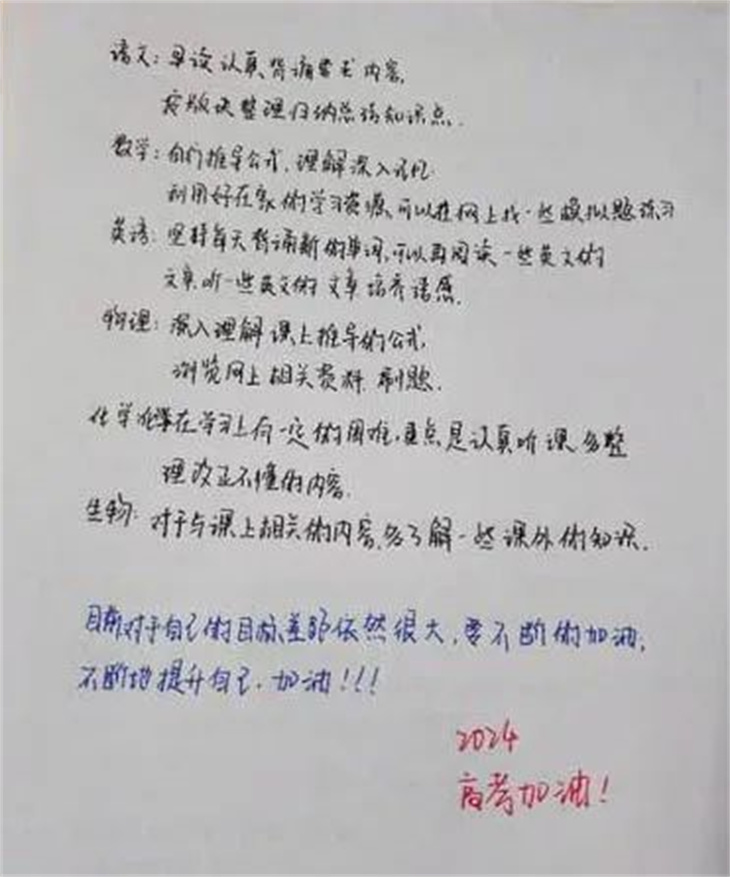 语文：早读认真背诵要求内容，
整理归纳总结知识点．
数学：自行推导公式，理解深入记忆
利用好在家的学习资源，可以在网上找一些模拟题练习
英语：坚持每天背诵新的单词，可以再阅读一些英文的
文章，听一些英文的文章培养语感．
物理：深入理解课上推导的公式，
浏览网上相关资料 刷题．
化学 在学习上有一定的困难，重点是认真听课 多整
理改正不懂的内容．
生物：对于与课上相关的内容，多了解一些课外的知识．
目前对于自己的目标差距依然很大，要不断的加油，
不断地提升自己．加油！！！
2024
高考加油！